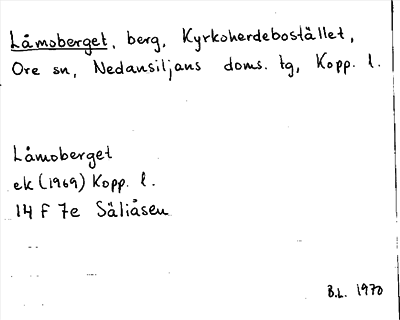 Låmoberget, berg, Kyrkoherdebostället,
Ore sn, Nedansiljans doms. tg, Kopp. l.
Låmoberget
ek (1969) Kopp. l.
14 F 7e Säliåsen
B.L. 1970